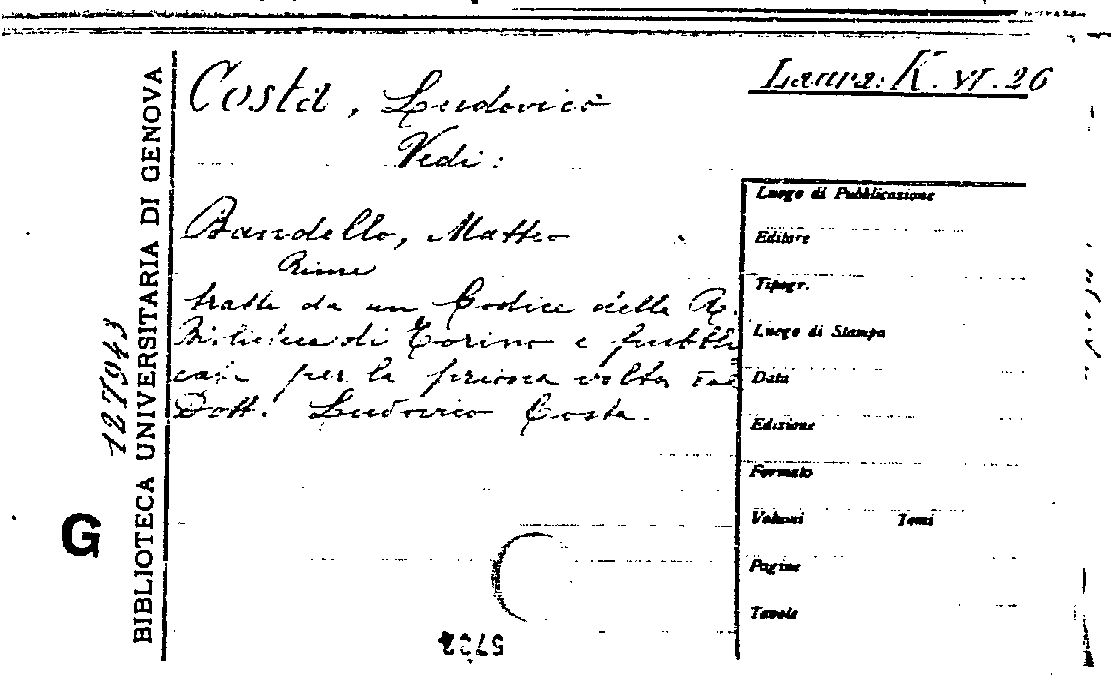 Costa, Ludovico
Laura: K. VI. 26
Vedi:
Bandello, Matteo
Rime
tratte da un Codice della R.
Biblioteca di Torino e pubbli
cate per la prima volta dal
Dott. Ludovico Costa.
Luogo di Pubblicazione
Editore
Tipogr.
Luogo di Stampa
Data
Edizione
Formato
Volumi Tomi
Pagine
Tavole
BIBLIOTECA UNIVERSITARIA DI GENOVA
127943
G